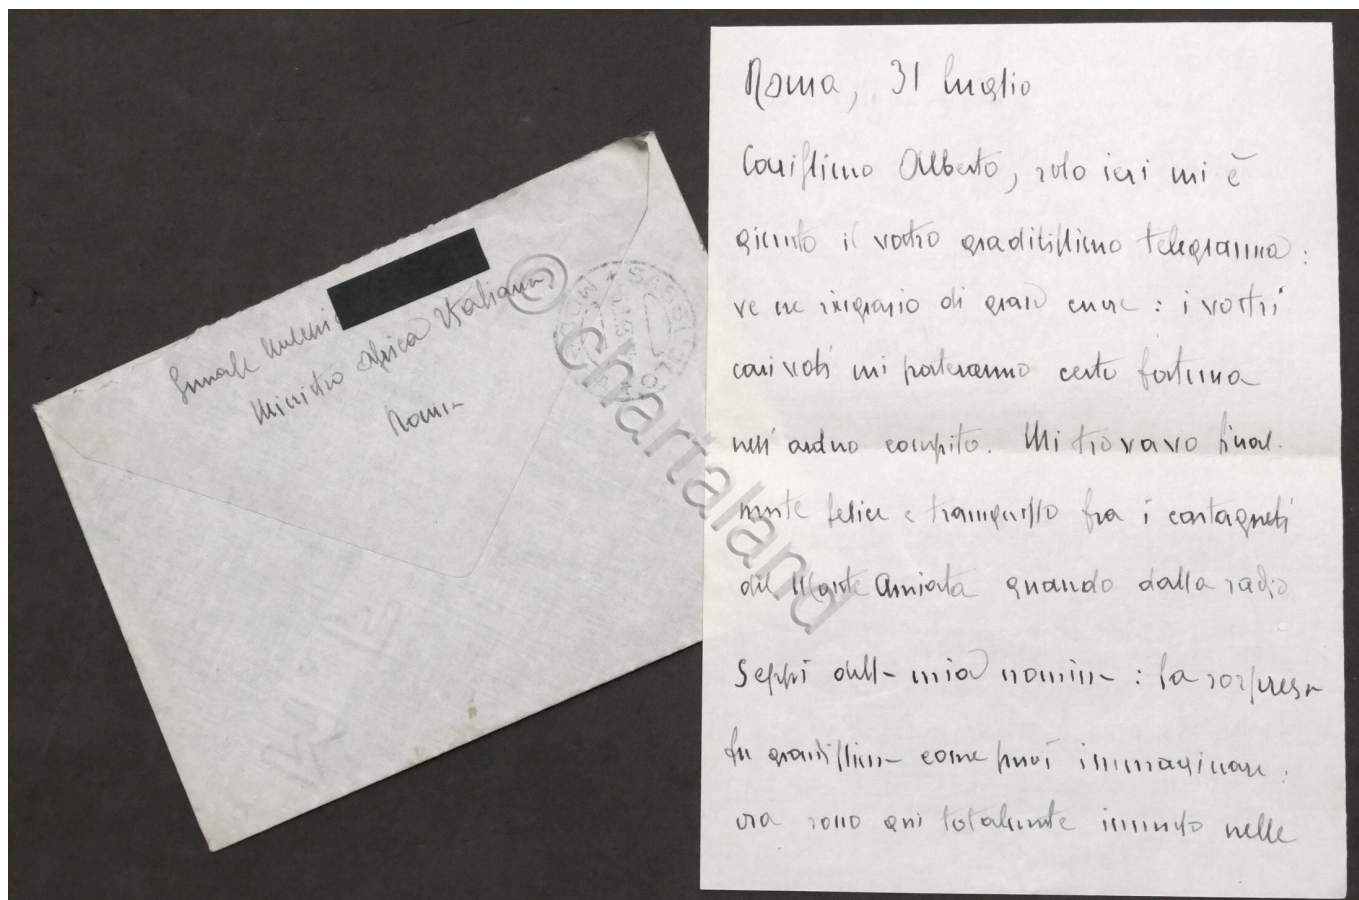 Ministro Africa Italiana
Roma
© chartaland
Roma, 31 luglio
Carissimo Alberto, solo ieri mi è
giunto il vostro graditissimo telegramma:
ve ne ringrazio di gran cuore: i vostri
cari voti mi porteranno certo fortuna
nell'arduo compito. Mi trovavo final-
mente felice e tranquillo fra i castagneti
del Monte Amiata quando dalla radio
seppi della mia nomina: la sorpresa
fu grandissima come puoi immaginare:
ora sono qui totalmente immerso nelle